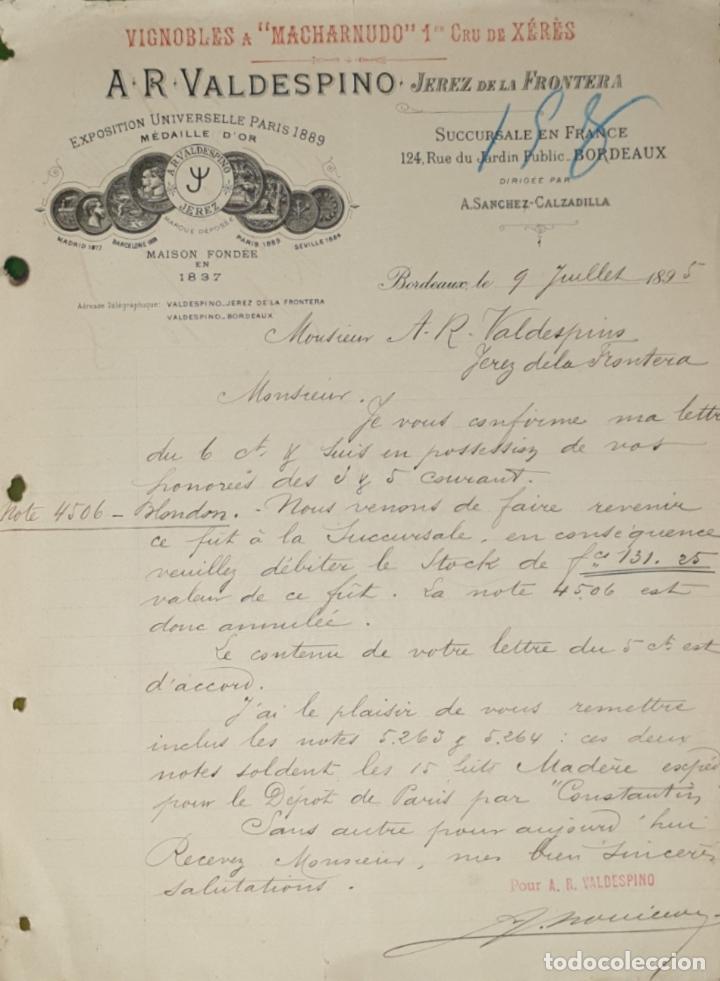 VIGNOBLES A "MACHARNUDO" 1er CRU DE XÉRÈS
A·R·VALDESPINO· JEREZ DE LA FRONTERA
158
EXPOSITION UNIVERSELLE PARIS 1889
MÉDAILLE D'OR
A.R.VALDESPINO
JEREZ
MARQUE DÉPOSÉE
MADRID 1877 BARCELONE 1888 PARIS 1889 SEVILLE 1884
MAISON FONDÉE
EN
1837
SUCCURSALE EN FRANCE
124, Rue du Jardin Public_ BORDEAUX
DIRIGÉE PAR
A. SANCHEZ-CALZADILLA
Adresse Télégraphique: VALDESPINO_JEREZ DE LA FRONTERA
VALDESPINO_BORDEAUX
Bordeaux, le 9 Juillet 1895
Monsieur A. R. Valdespino
Jerez de la Frontera
Monsieur.
Je vous confirme ma lettre
du 6 ct. y suis en possession de vos
honorées des 3 y 5 courant.
Note 4506 - Blondon. - Nous venons de faire revenir
ce fût à la Succursale, en conséquence
veuillez débiter le Stock de fcs 131. 25
valeur de ce fût. La note 4506 est
donc annulée.
Le contenu de votre lettre du 5 ct. est
d'accord.
J'ai le plaisir de vous remettre
inclus les notes 5.263 y 5.264 : ces deux
notes soldent les 15 fûts Madère expéd
pour le Dépôt de Paris par "Constantin"
Sans autre pour aujourd'hui
Recevez Monsieur, mes bien sincères
salutations.
Pour A. R. VALDESPINO
todocoleccion.net